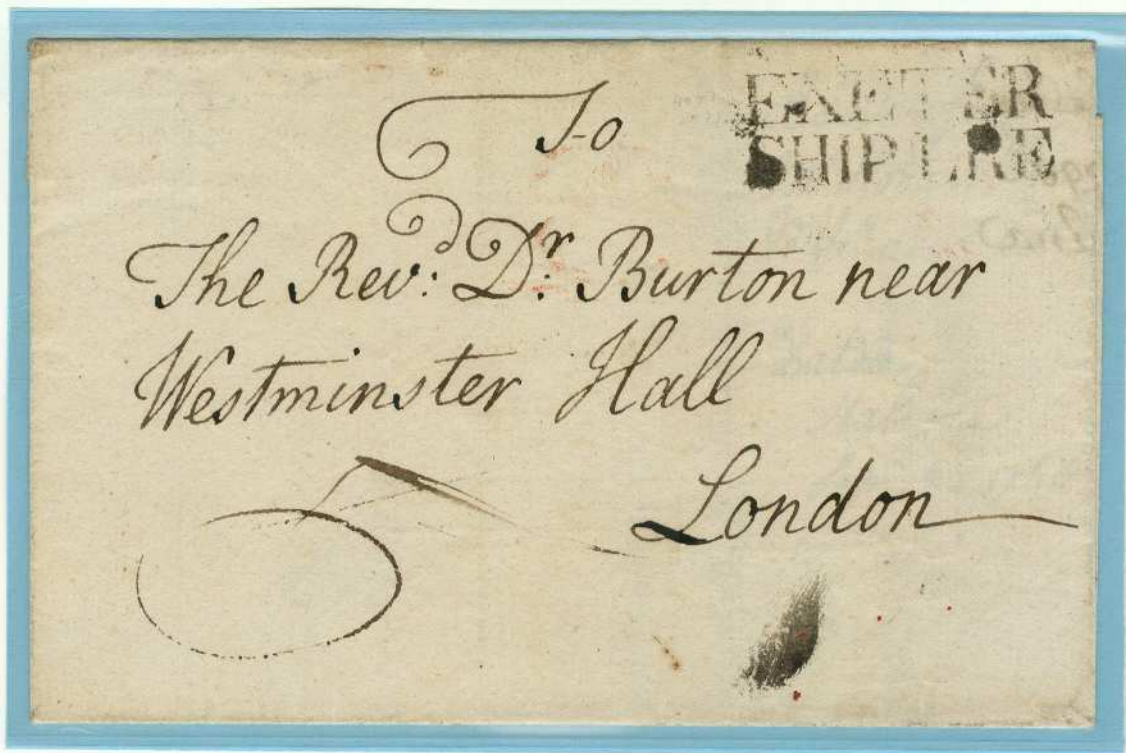 EXETER
SHIP LRE
To
The Rev:d Dr: Burton near
Westminster Hall
London
5